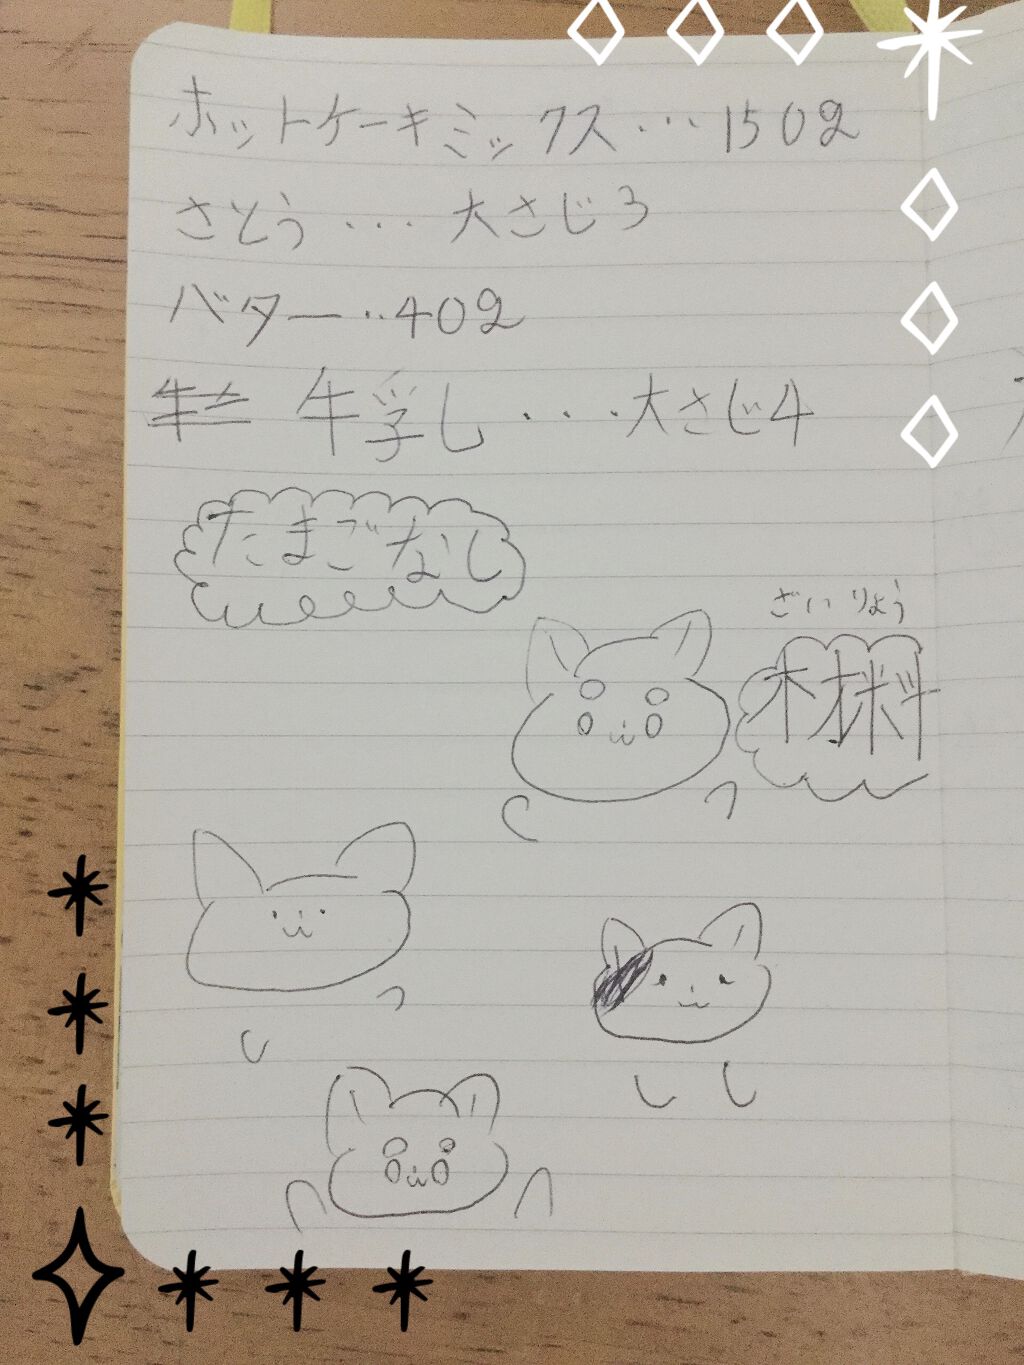 ホットケーキミックス・・・150g
さとう・・・大さじ3
バター・・40g
牛乳し・・・・大さじ4
たまごなし
ざいりょう
材料